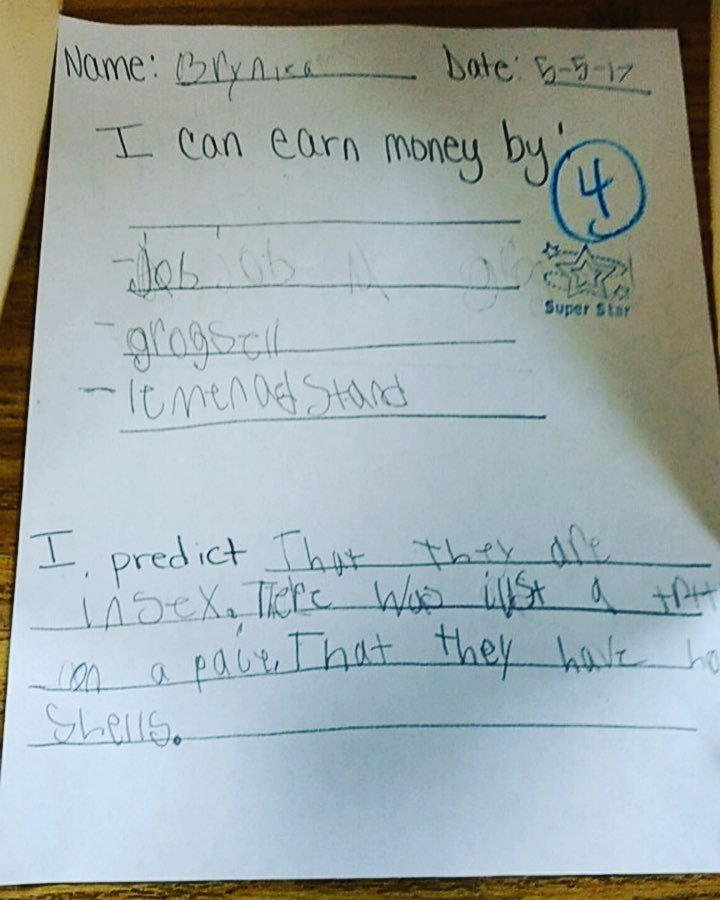 Name: Brynisa Date: 5-5-17
I can earn money by:
4
Super Star
- Job
- grogsell
- lemenad Stand
I predict That they are
insex. There was just a
on a paie. That they have
Shells.